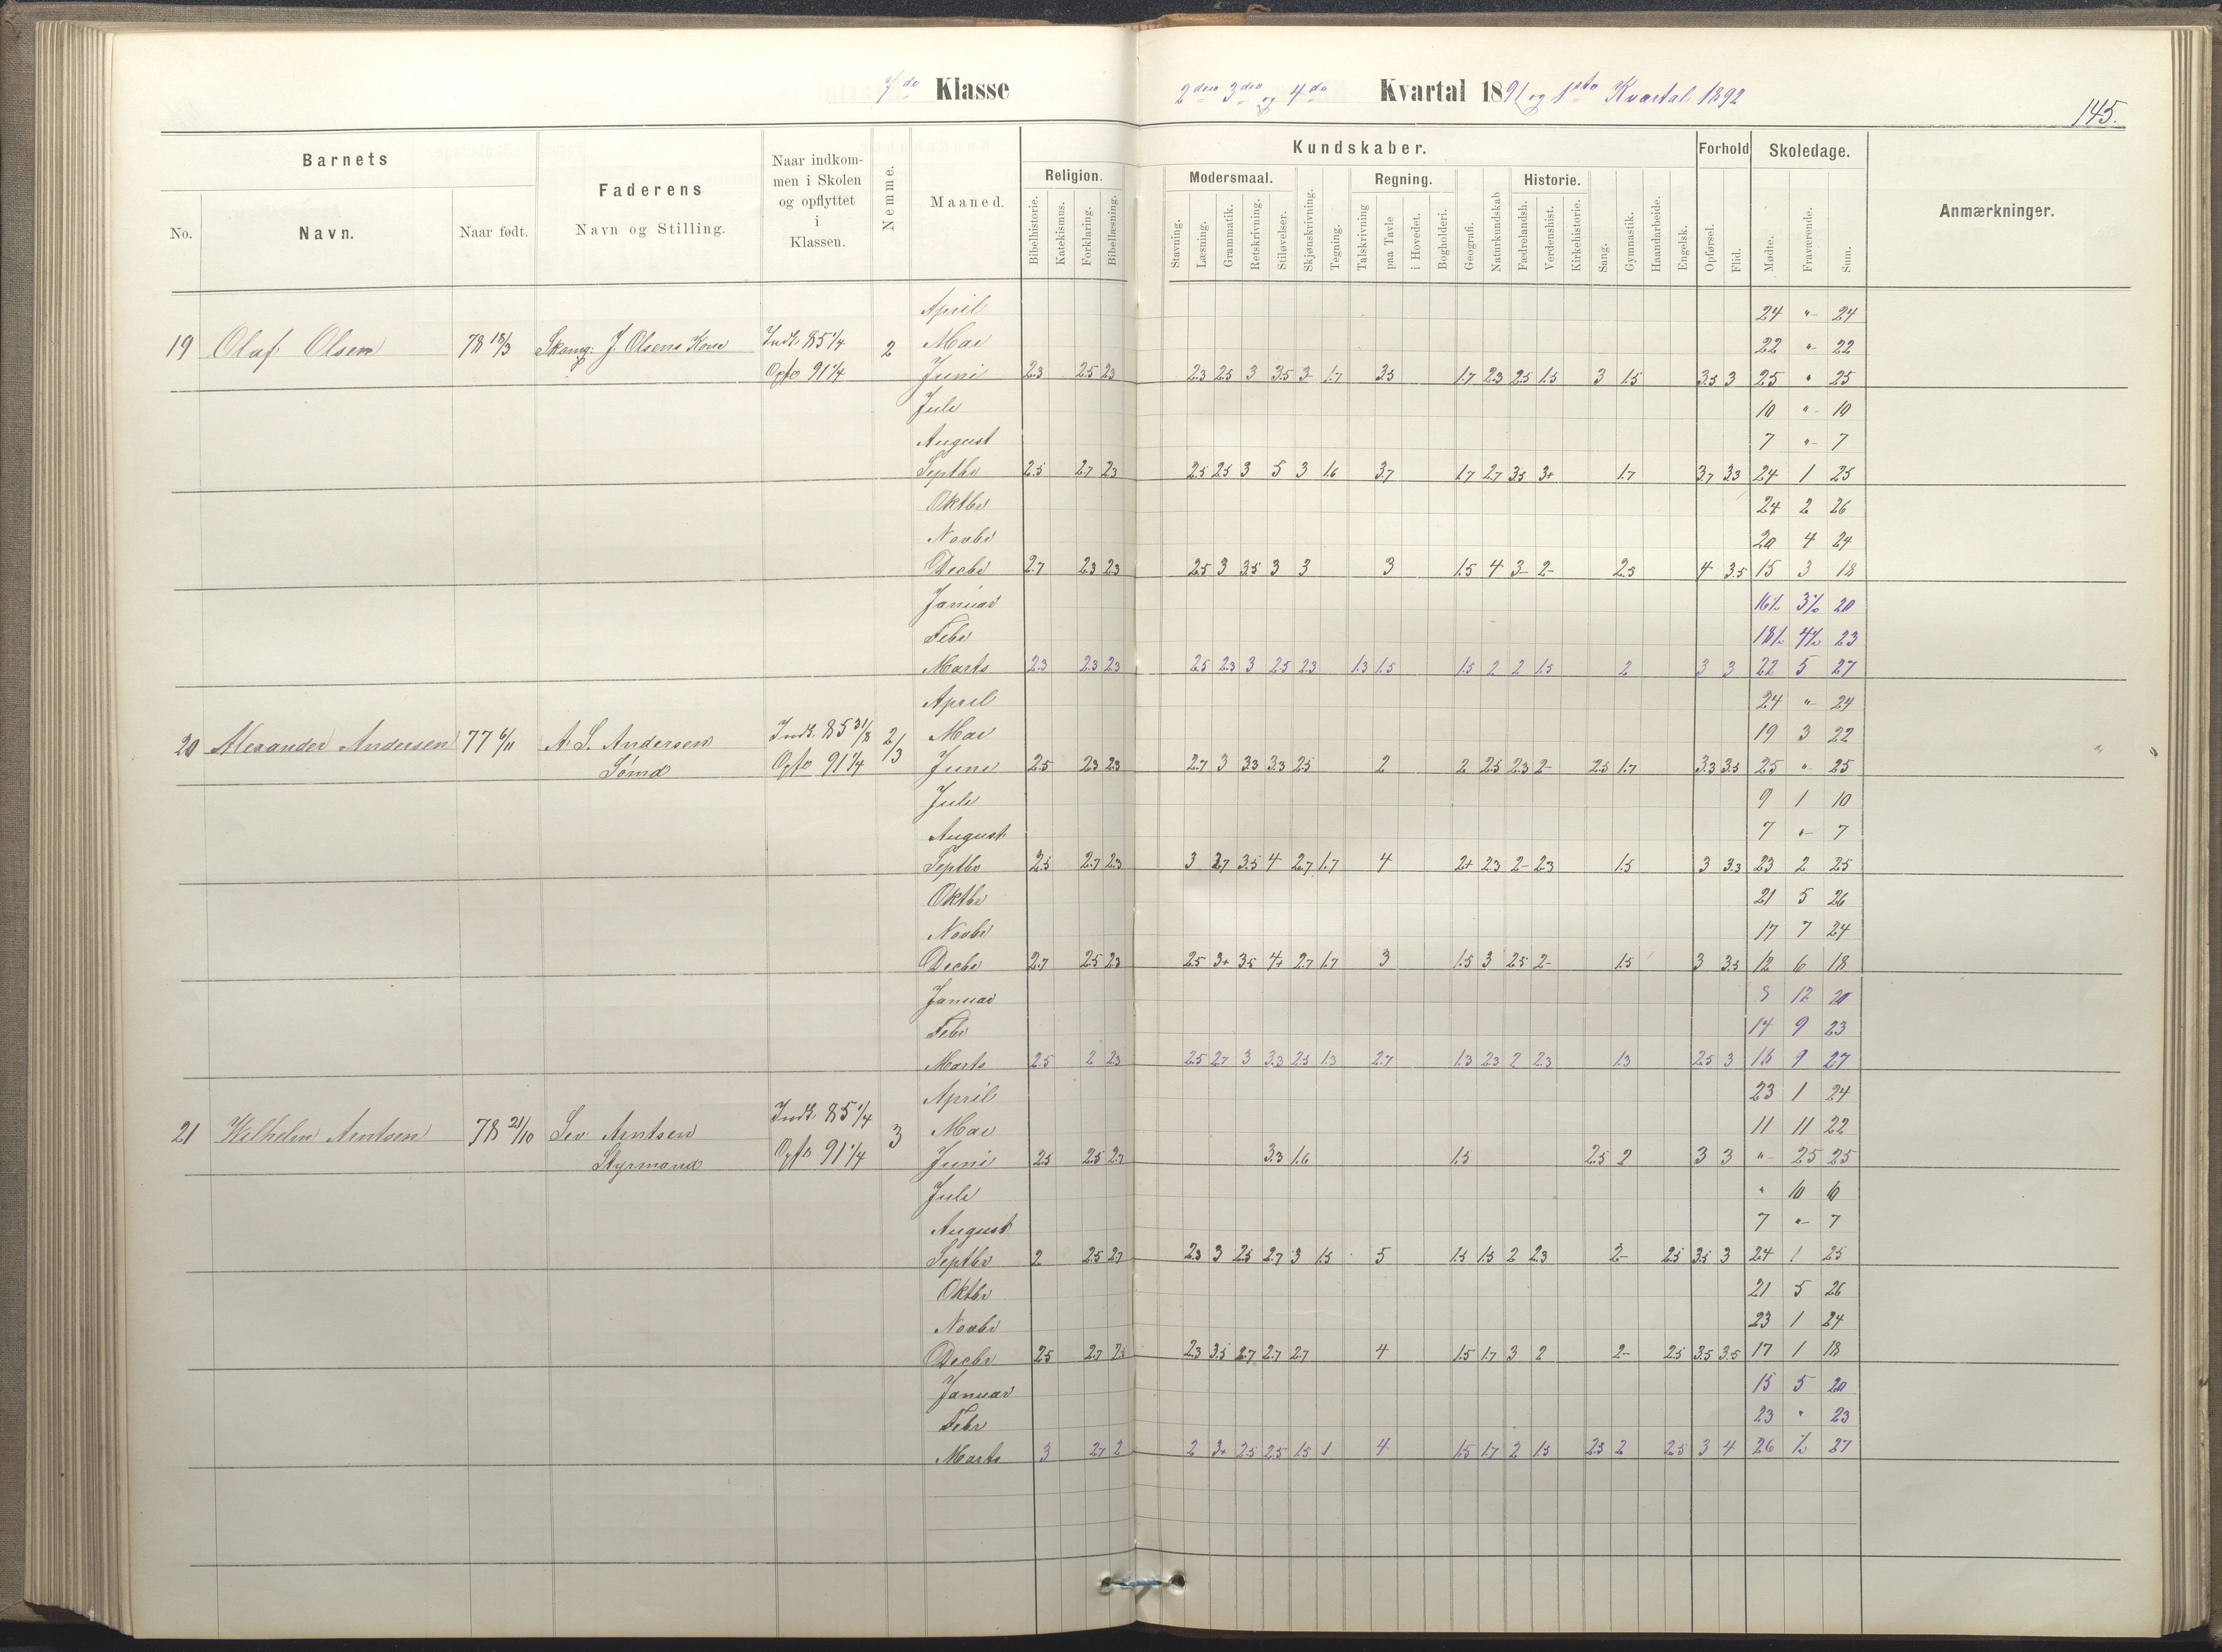 7de Klasse
2den 3die og 4de Kvartal 1891 og 1ste Kvartal 1892
145.
Barnets
No. Navn. Naar født.
Faderens
Navn og Stilling.
Naar indkom-
men i Skolen
og opflyttet
i
Klassen.
Nemme.
Maaned.
Kundskaber.
Religion.
Bibelhistorie. Katekismus. Forklaring. Bibellæsning.
Modersmaal.
Stavning. Læsning. Grammatik. Retskrivning. Stiløvelser. Skjønskrivning. Tegning.
Regning.
Talskrivning paa Tavle i Hovedet. Bogholderi. Geografi. Naturkundskab
Historie.
Fædrelandsh. Verdenshist. Kirkehistorie. Sang. Gymnastik. Haandarbeide. Engelsk.
Forhold
Opførsel. Flid.
Skoledage.
Mødte. Fraværende. Sum.
Anmærkninger.
April 24 " 24
19 Olaf Olsen 78 18/3 J Olsens Kone Indk. 85 1/4 2 Mai 22 " 22
Opfl 91 1/4 Juni 2.3 2.5 2.3 2.3 2.5 3 3.5 3- 1.7 3.5 1.7 2.3 2.5 1.5 3 1.5 3.5 3 25 " 25
Juli 10 " 10
August 7 " 7
Septbr 2.5 2.7 2.3 2.5 2.5 3 5 3 1.6 3.7 1.7 2.7 3.5 3+ 1.7 3.7 3.3 24 1 25
Oktbr 24 2 26
Novbr 20 4 24
Decbr 2.7 2.3 2.3 2.5 3 3.5 3 3 3 1.5 4 3- 2- 2.3 4 3.5 15 3 18
Januar 16½ 3½ 20
Febr 18½ 4½ 23
Marts 2.3 2.3 2.3 2.5 2.3 3 2.5 2.3 1.3 1.5 1.5 2 2 1.5 2 3 3 22 5 27
April 24 " 24
20 Alexander Andersen 77 6/11 A. S. Andersen Indk. 85 31/8 2/3 Mai 19 3 22
Sømd Opfl 91 1/4 Juni 2.5 2.3 2.3 2.7 3 3.3 3.3 2.5 2 2 2.5 2.3 2- 2.5 1.7 3.3 3.5 25 " 25
Juli 9 1 10
August 7 " 7
Septbr 2.5 2.7 2.3 3 2.7 3.5 4 2.7 1.7 4 2+ 2.3 2- 2.3 1.5 3 3.3 23 2 25
Oktbr 21 5 26
Novbr 17 7 24
Decbr 2.7 2.5 2.3 2.5 3+ 3.5 4+ 2.7 1.7 3 1.5 3 2.5 2- 1.5 3 3.5 12 6 18
Januar 12 20
Febr 14 9 23
Marts 2.5 2 2.3 2.5 2.7 3 3.3 2.5 1.3 2.7 1.3 2.3 2 2.3 1.3 2.5 3 18 9 27
April 23 1 24
21 Wilhelm Arntsen 78 21/10 Sev. Arntsen Indk. 85 1/4 3 Mai 11 11 22
Styrmand Opfl 91 1/4 Juni 2.5 2.5 2.7 3.3 1.6 1.5 2.5 2 3 3 " 25 25
Juli " 10 10
August 7 " 7
Septbr 2 2.5 2.7 2.3 3 2.5 2.7 3 1.5 5 1.5 1.5 2 2.3 2- 2.5 3.5 3 24 1 25
Oktbr 21 5 26
Novbr 23 1 24
Decbr 2.5 2.7 2.5 2.3 3.5 2.7 2.7 2.7 4 1.5 1.7 3 2 2- 2.5 3.5 3.5 17 1 18
Januar 15 5 20
Febr 23 " 23
Marts 3 2.7 2 2 3+ 2.5 2.5 1.5 1 4 1.5 1.7 2 1.5 2.3 2 2.5 3 4 26 ½ 27